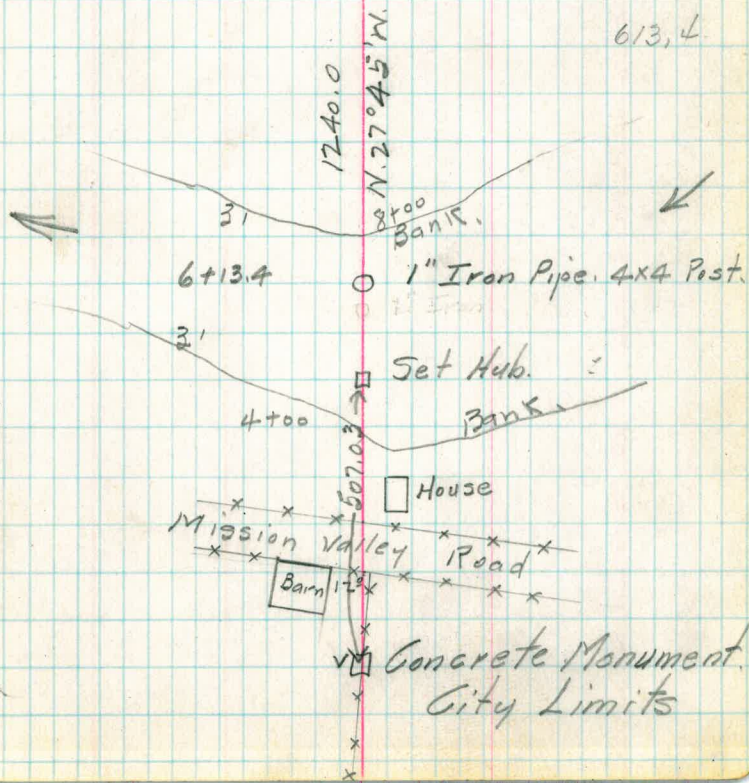 613,4
1240.0
N. 27°45' W.
3'
8+00
Bank.
6+13.4
1" Iron Pipe. 4x4 Post.
3'
Set Hub.
4+00
Bank.
507.03
House
Mission Valley Road
Barn
Concrete Monument.
City Limits